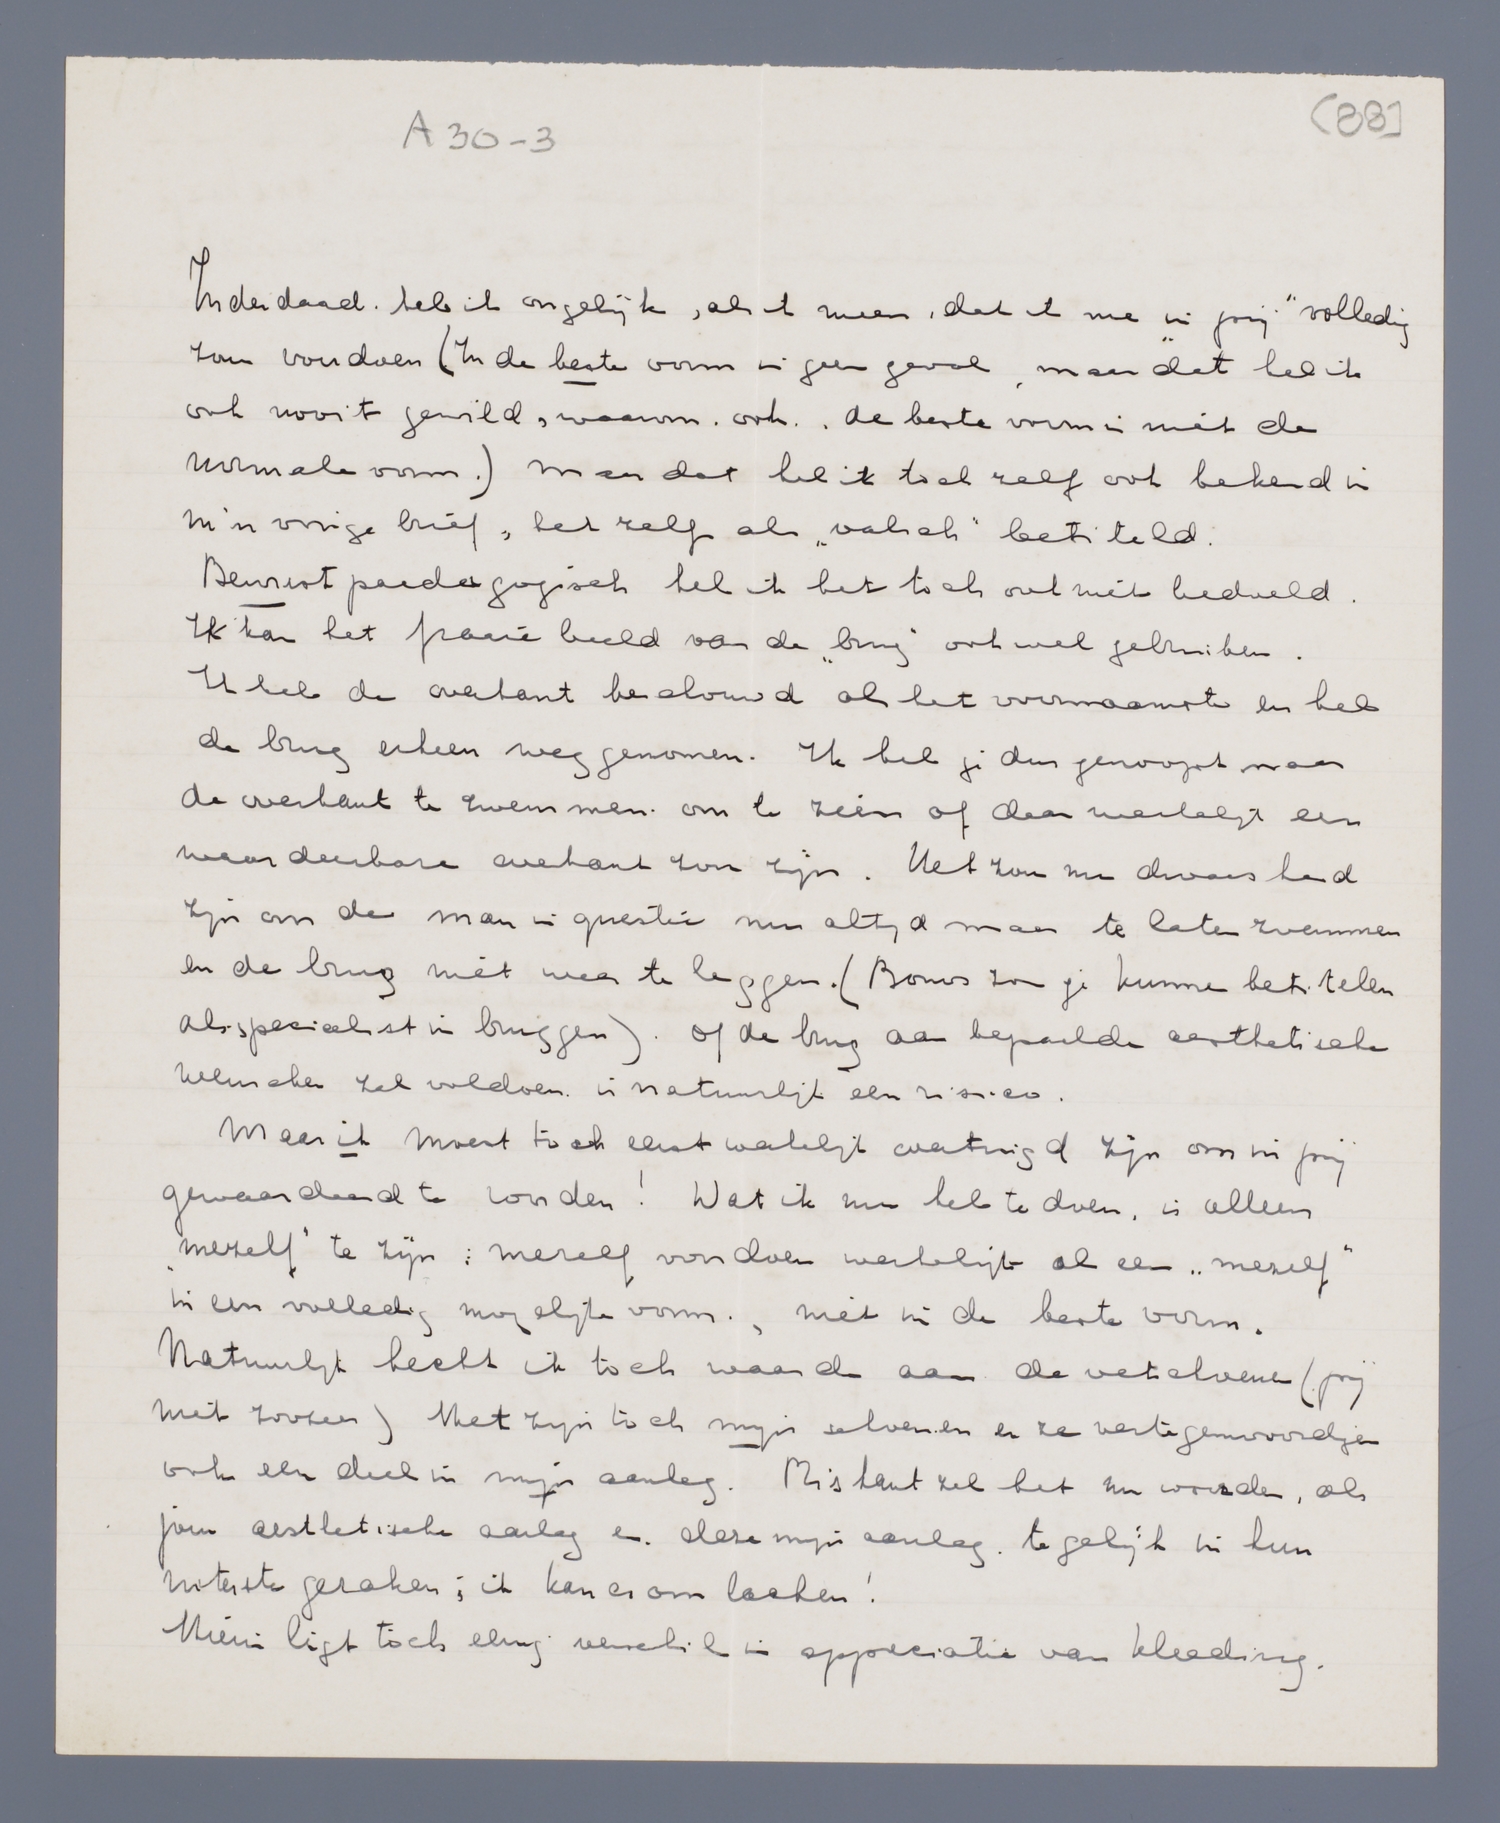 A 30-3
(88]
Inderdaad. heb ik ongelijk, als ik meen, dat ik me in prij "volledig
zou voordoen (In de beste vorm in geen geval, maar dat heb ik
ook nooit gewild, waarom. ook.. de beste vorm is niet de
normale vorm.) Maar dat heb ik toch zelf ook bekend in
m'n vorige brief, het zelf als „valsch" betiteld.
Bewust paedagogisch heb ik het toch ook niet bedoeld.
Ik kan het fraaie beeld van de „brug" ook wel gebruiken.
Ik heb de overkant beschouwd als het voornaamste en heb
de brug erheen weggenomen. Ik heb je dus genoopt naar
de overkant te zwemmen. om te zien of daar werkelijk een
waardeerbare overkant zou zijn. Het zou nu dwaasheid
zijn om de man in questie nu altijd maar te laten zwemmen
en de brug niet weer te leggen. (Bonus zou je kunnen betitelen
als specialist in bruggen). Of de brug aan bepaalde aesthetische
wenschen zal voldoen. is natuurlijk een risico.
Maar ik moest toch eerst werkelijk overtuigd zijn om in prij
gewaardeerd te worden! Wat ik nu heb te doen, is alleen
„mezelf" te zijn: mezelf voordoen werkelijk als een „mezelf"
in een volledig mogelijke vorm., niet in de beste vorm.
Natuurlijk hecht ik toch waarde aan de vetschoenen (prij
niet zoozeer) Het zijn toch mijn schoenen en ze vertegenwoordigen
ook een deel in mijn aanleg. Riskant zal het nu worden, als
jouw aesthetische aanleg en. deze mijn aanleg. tegelijk in hun
uiterste geraken; ik kan er om lachen!
Hierin ligt toch eenig verschil in appreciatie van kleeding.